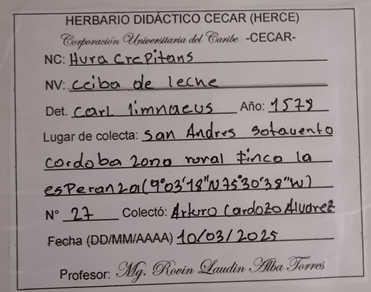 HERBARIO DIDÁCTICO CECAR (HERCE)
Corporación Universitaria del Caribe -CECAR-
NC: Hura Crepitans
NV: Ceiba de leche
Det. Carl limnaeus Año: 1578
Lugar de colecta: San Andres Sotavento
Cordoba Zona rural Finca la
esperanza (9°03'18"N 75°30'38"W)
N° 27 Colectó: Arturo Cardozo Alvarez
Fecha (DD/MM/AAAA) 10/03/2025
Profesor: Mg. Rovin Laudin Alba Torres